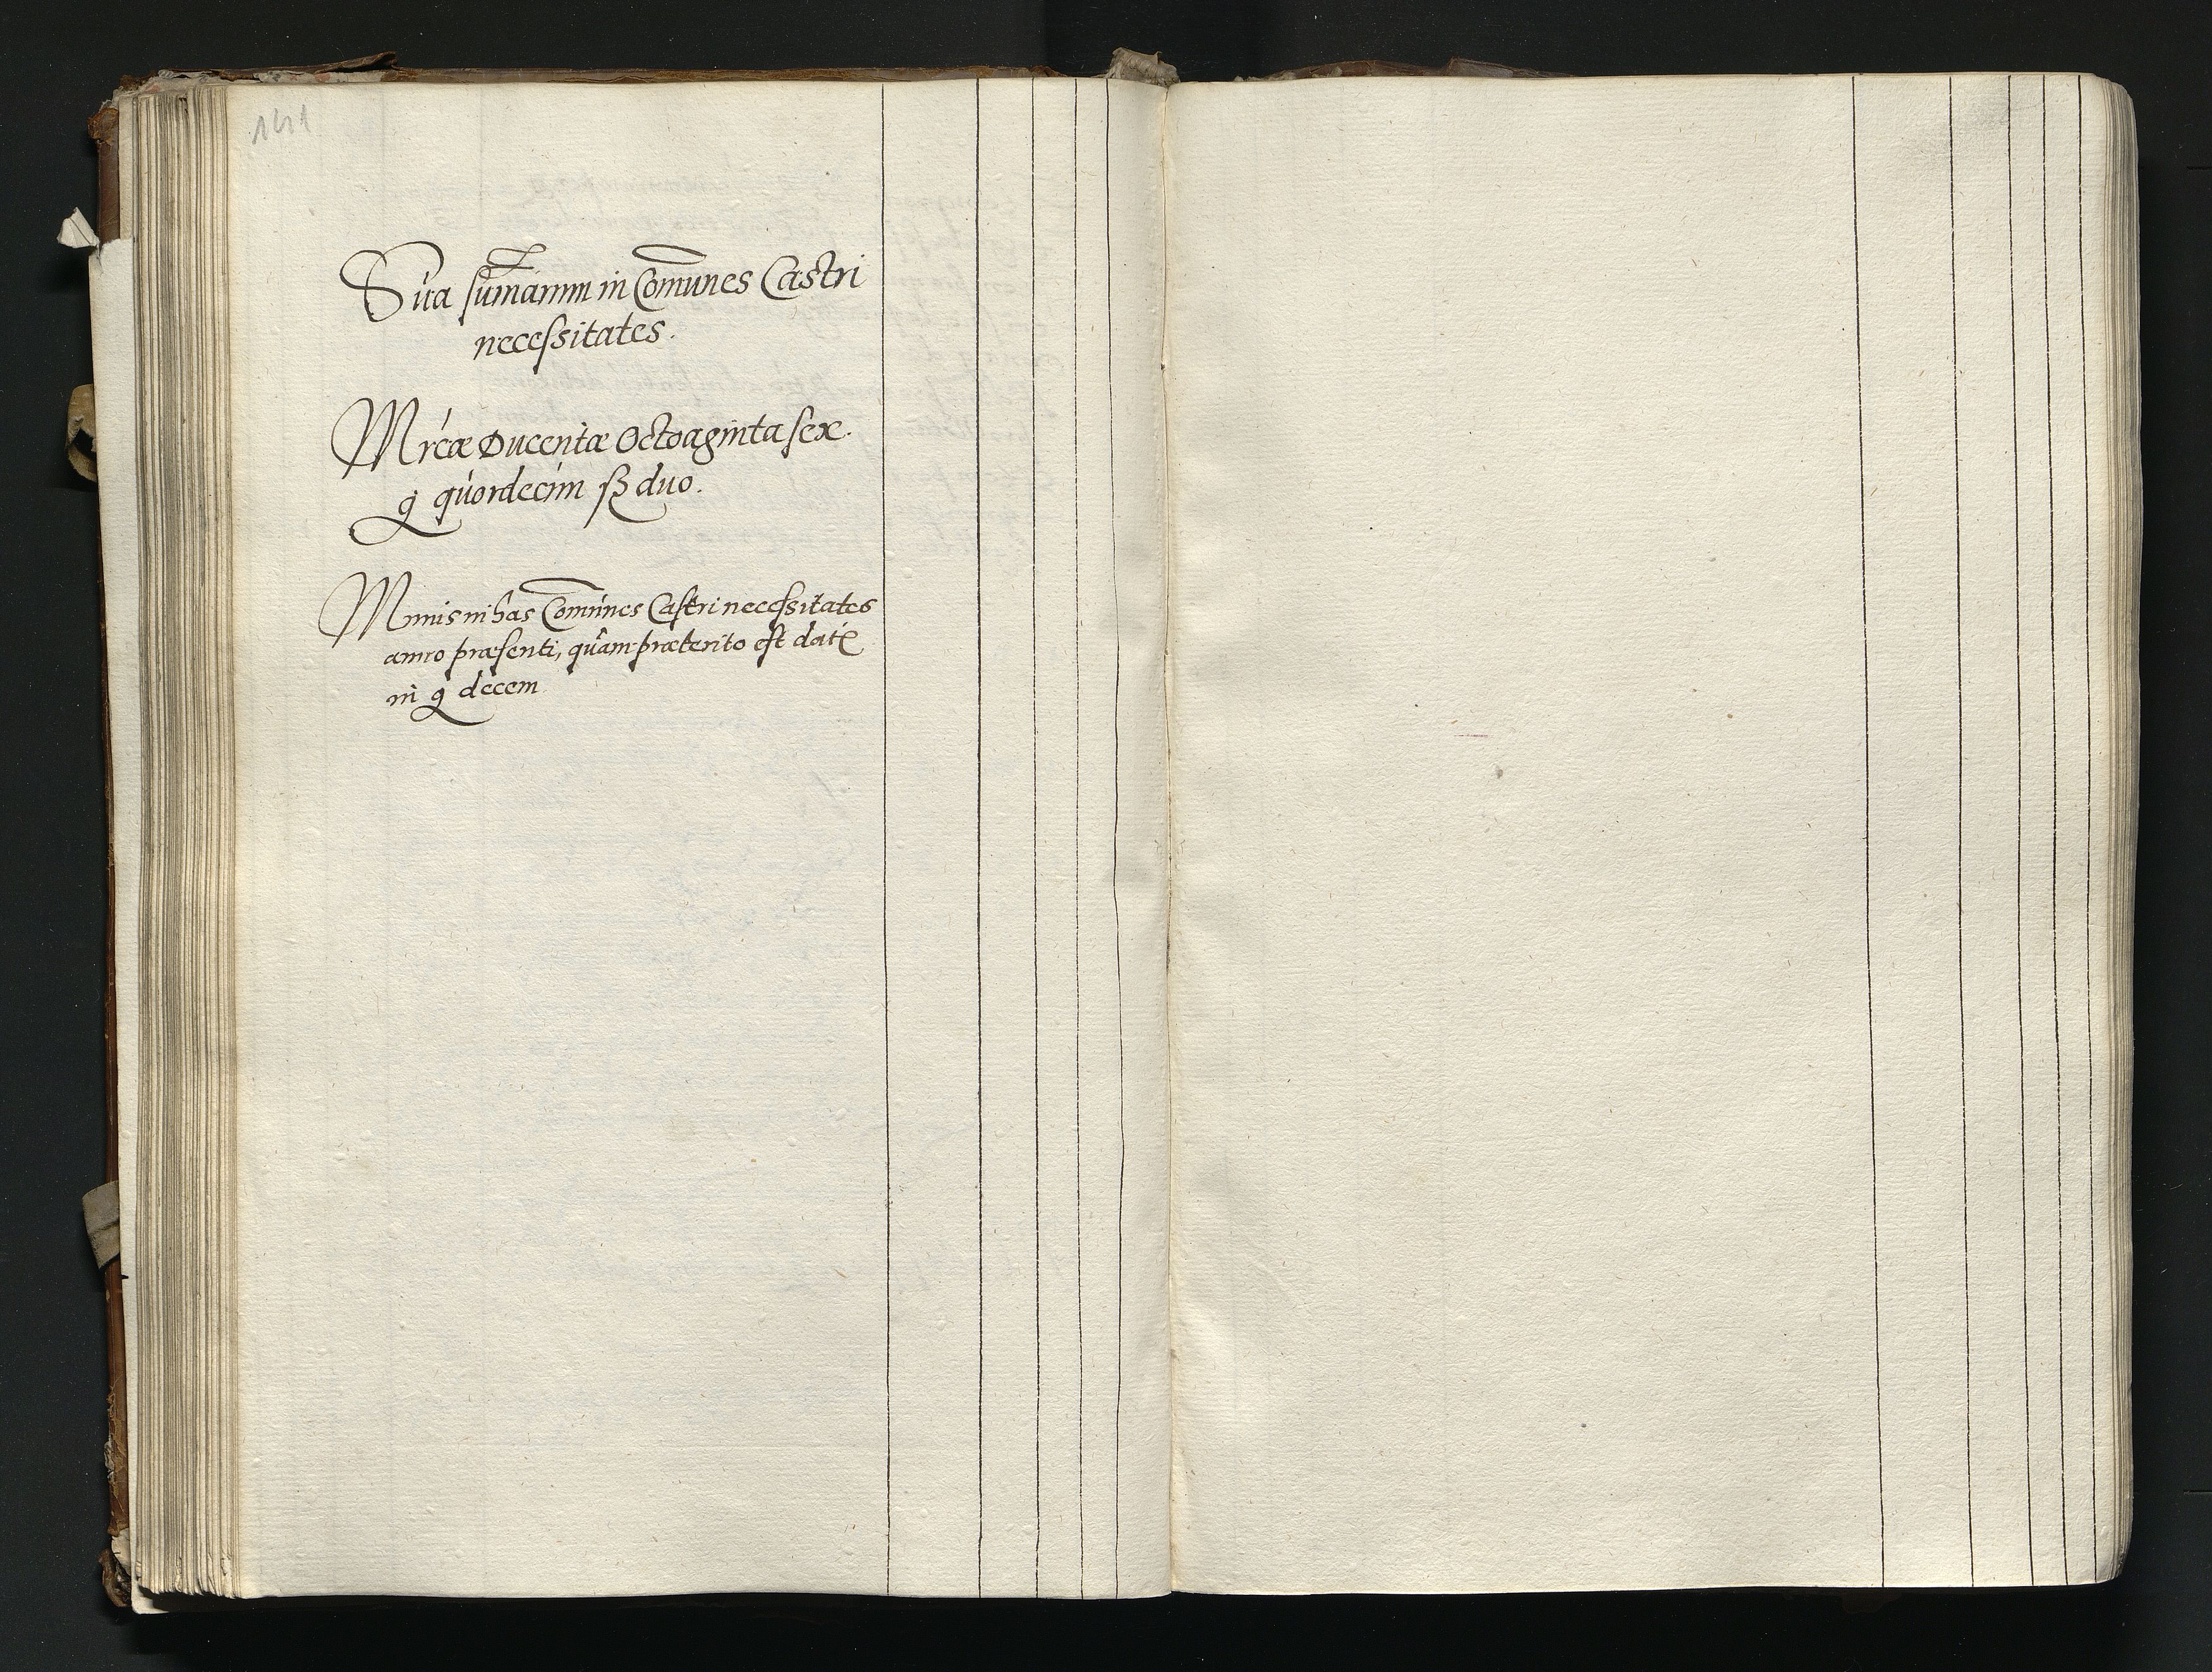 141
Sūa sūmarum in Comunes Castri
necessitates.
Mrcæ Ducentæ Octoaginta sex.
g̃ qúordecim ß duo.
Minus in has Comúnes Castri necessitates
anno præsenti, quàm præterito est datũ
in g̃ decem